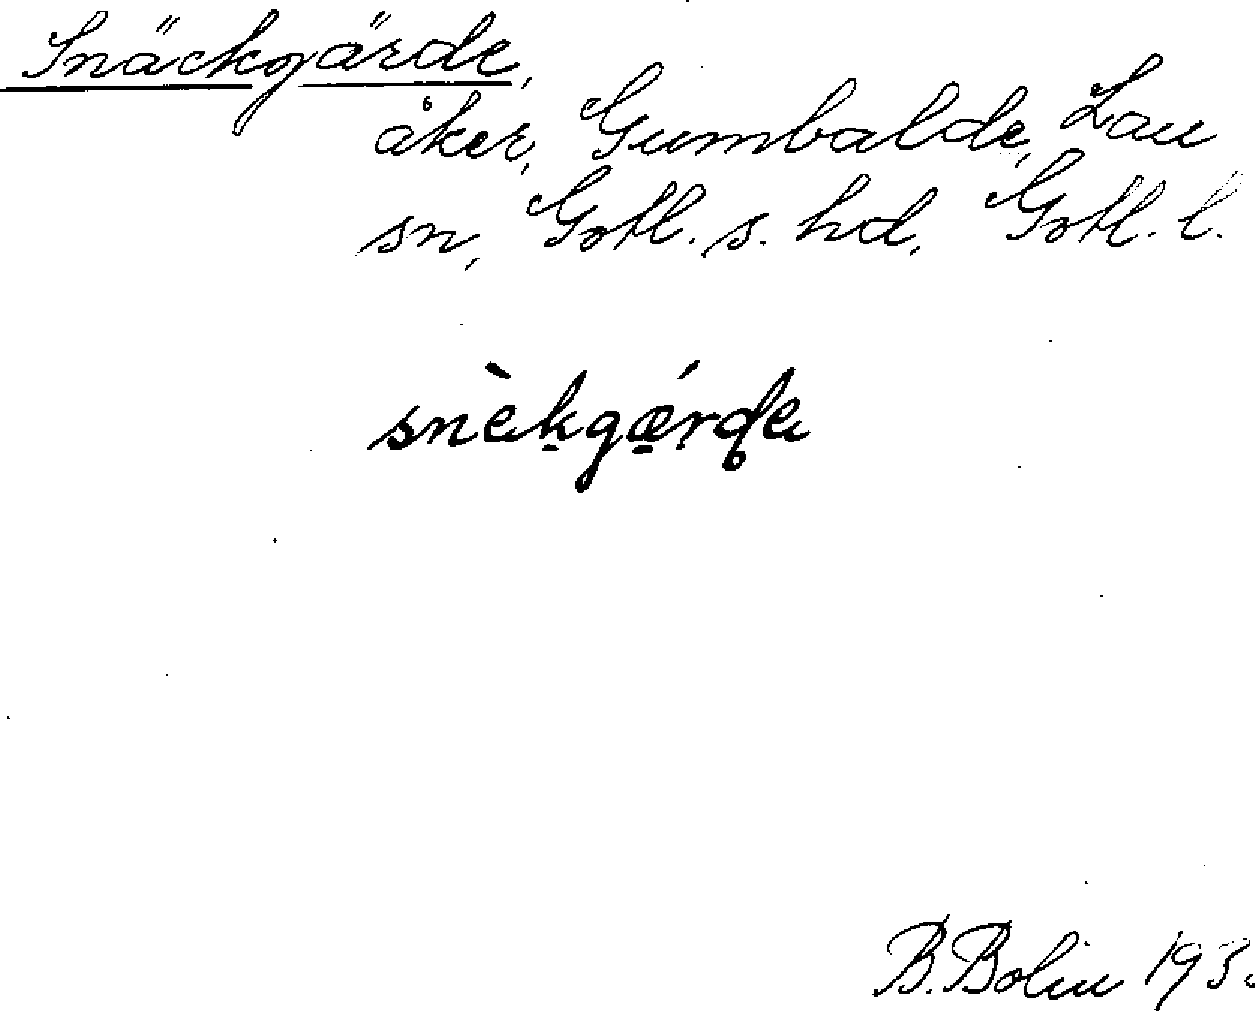 Snäckgärde,
åker, Gumbalde, Lau
sn, Gotl. s. hd, Gotl. l.
snèkgǽrde
B. Bolin